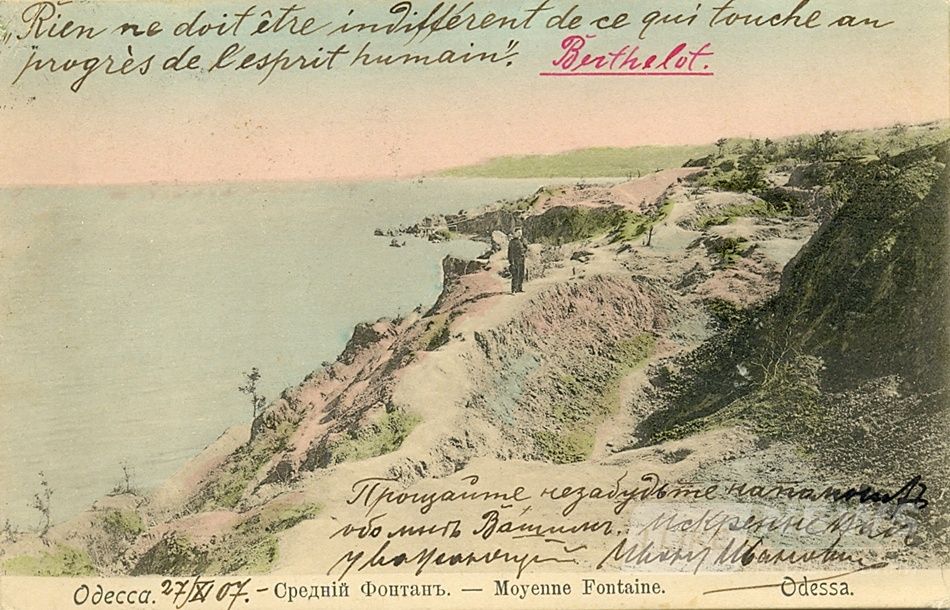 „Rien ne doit être indifférent de ce qui touche au
progrès de l'esprit humain“. Berthelot.
Прощайте незабудьте
обо мнѣ Искренне Васъ
уважающий Иванъ Ивановичъ
Одесса. 27/XI 07. – Средній Фонтанъ. — Moyenne Fontaine. — Odessa.